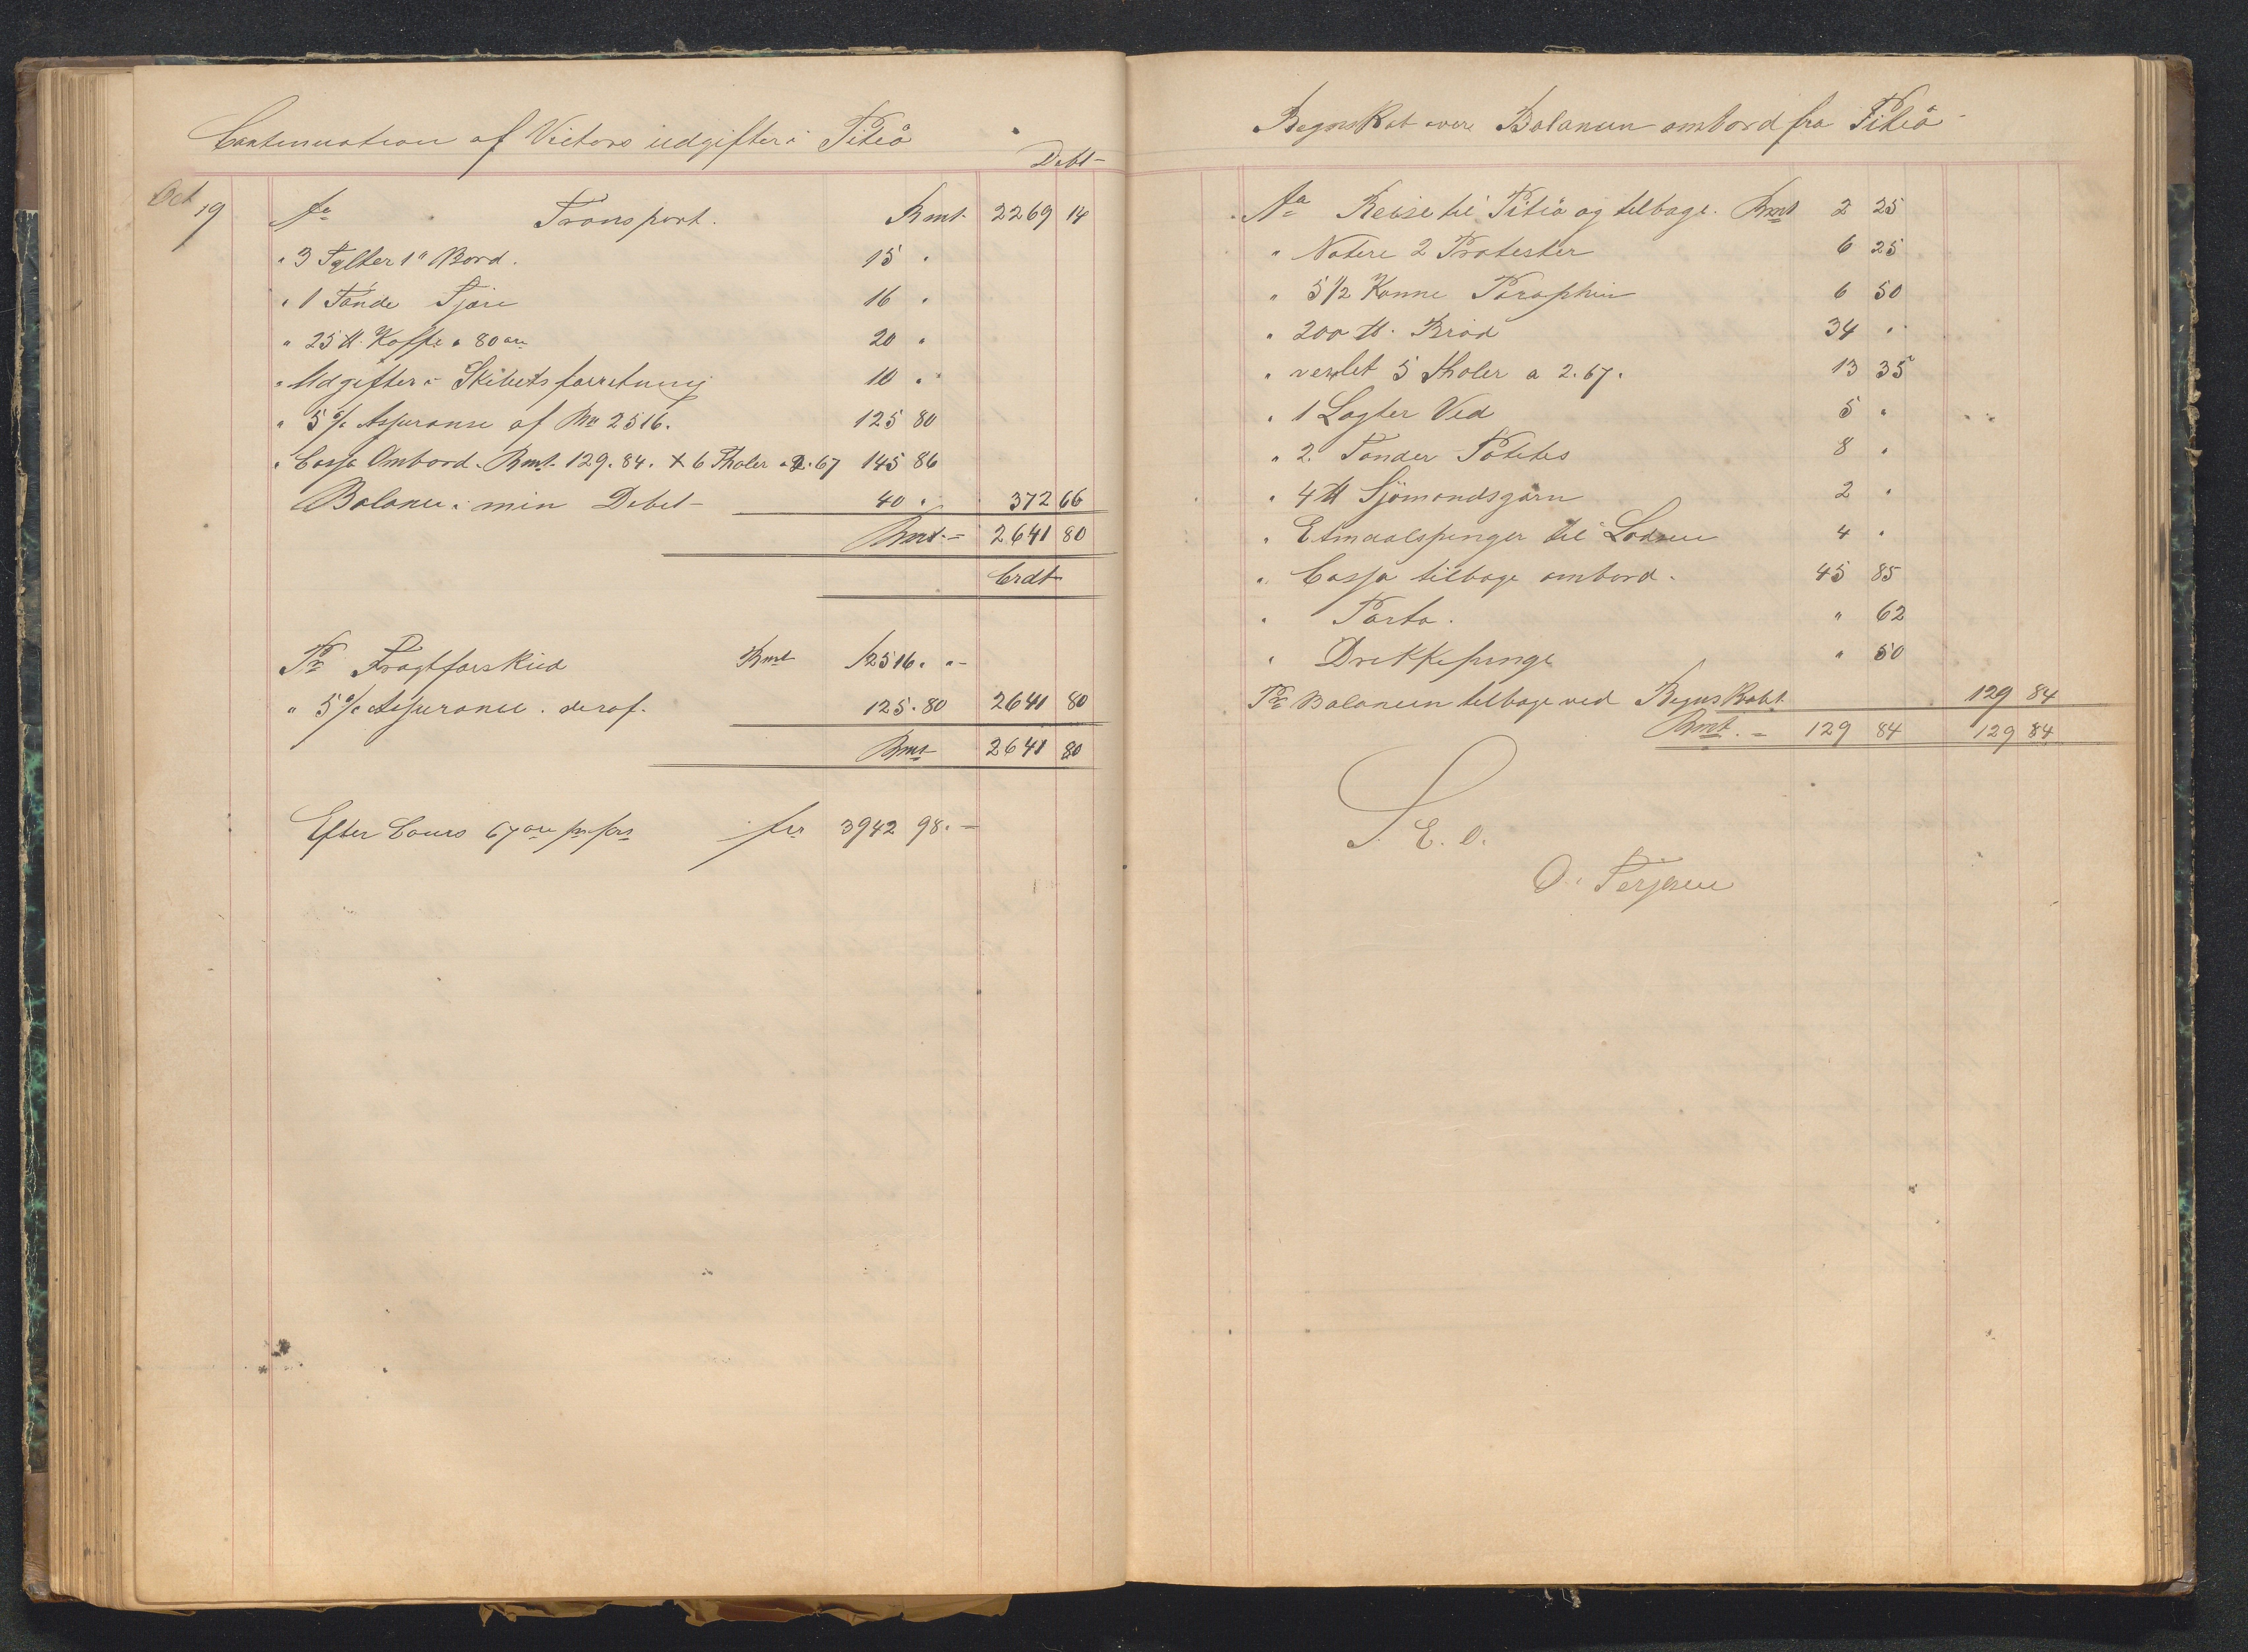 Continuation af Victors udgifter i Piteå
Debt
Oct 19 Aa Transport. Rmt. 2269 14
" 3 Tylter 1" Bord. 15 "
" 1 Tönde Tjäre 16 "
" 25 ℔. Kaffe a 80 øre 20 "
" Udgifter i Skibets forretning 10 "
" 5 % Assuranse af Rm 2516. 125 80
" Cassa Ombord. Rmt. 129.84. + 6 Tholer a 2.67 145 86
Balance i min Debet 40 " 372 66
Rmt. 2641 80
Crdt
Pr Fragtforskud Rmt 2516. "
" 5 % Assurance. deraf. 125.80 2641 80
Rmt 2641 80
Efter Cours 67 øre pr frs frs 3942 98.
Regnskab over Balancen ombord fra Piteå
Aa Reise til Piteå og tilbage. Rmt 2 25
" Notere 2 Protester 6 25
" 5 1/2 Kanne Paraphin 6 50
" 200 ℔. Bröd 34 "
" vexlet 5 Tholer a 2.67. 13 35
" 1 Lagter Ved 5 "
" 2. Tönder Potetes 8 "
" 4 ℔ Sjömandsgarn 2 "
" Etmaalspenger til Lodsen 4 "
" Cassa tilbage ombord. 45 85
" Porto. " 62
" Drikkepenge " 50
Pr Balancen tilbage ved Regnskabet 129 84
Rmt. 129 84 129 84
S. E. O.
O. Terjesen